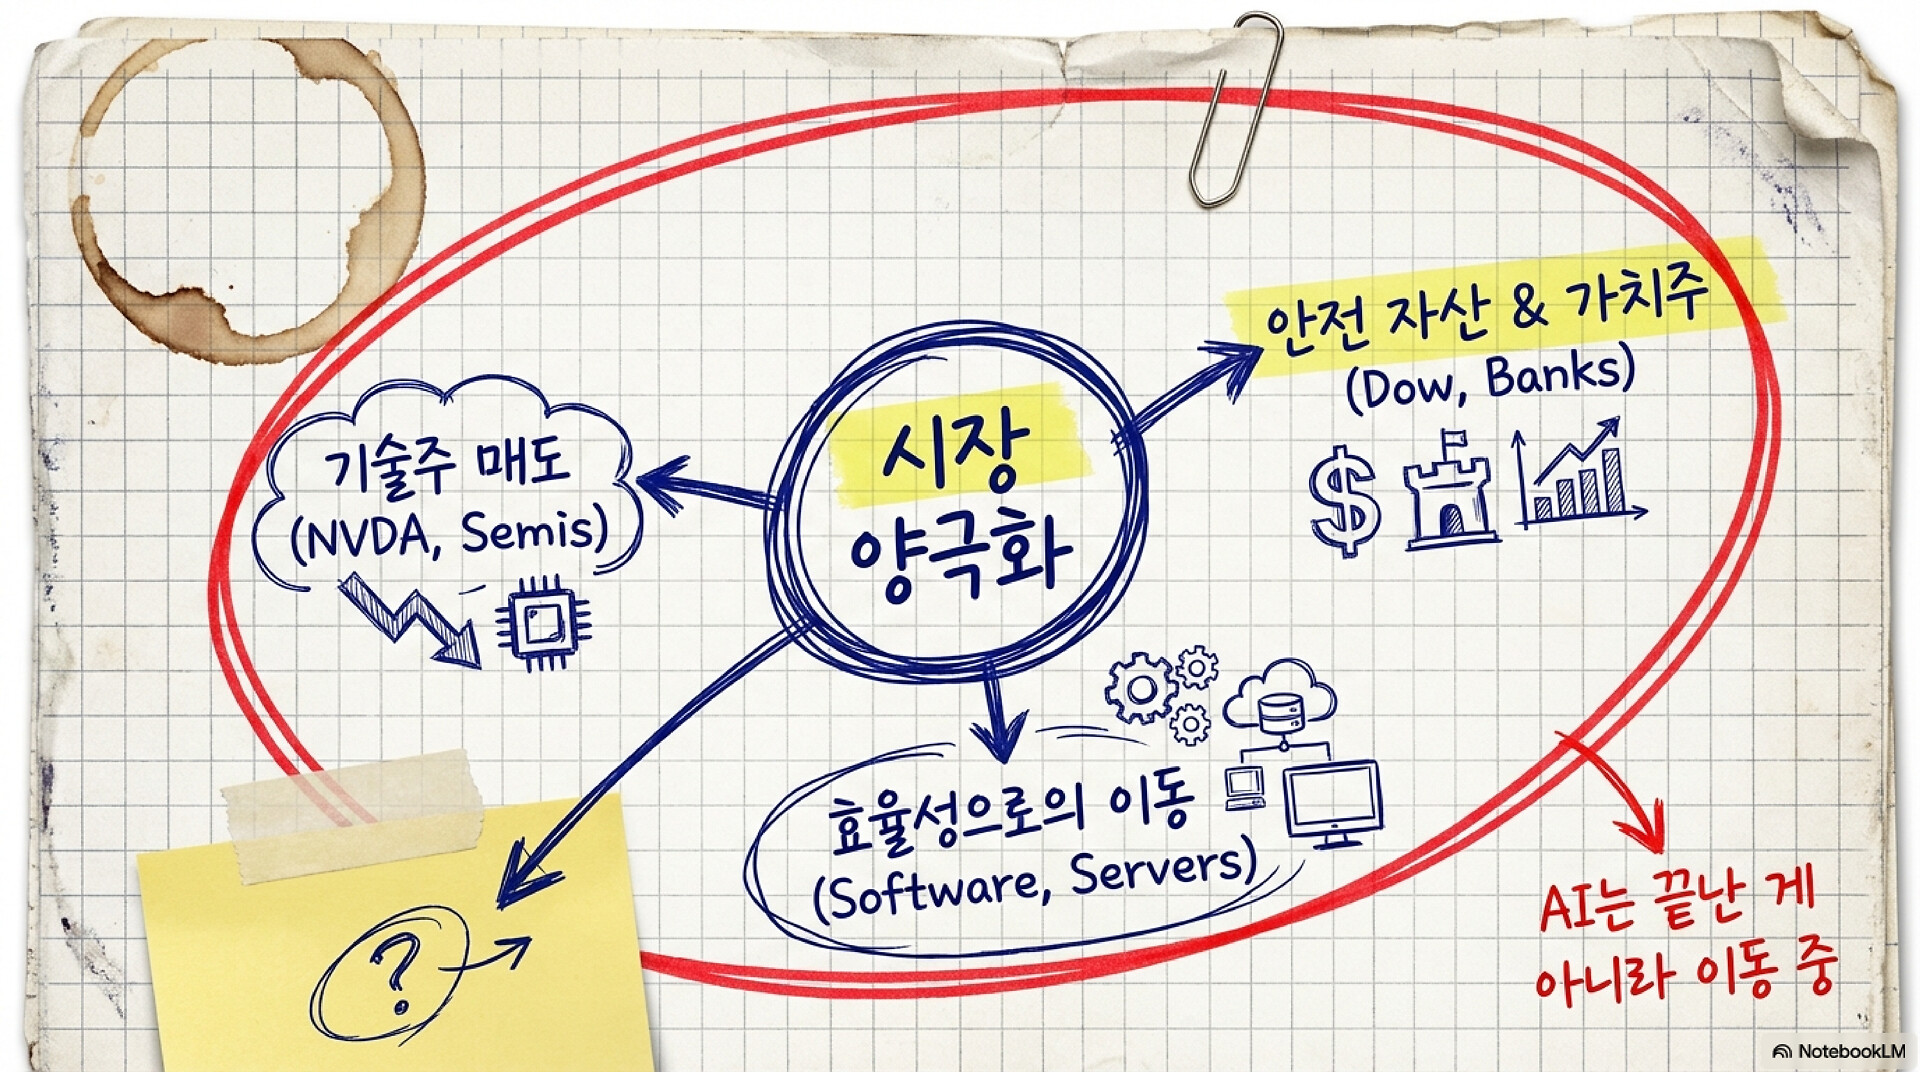 시장
양극화
기술주 매도
(NVDA, Semis)
안전 자산 & 가치주
(Dow, Banks)
$
효율성으로의 이동
(Software, Servers)
?
AI는 끝난 게
아니라 이동 중
NotebookLM